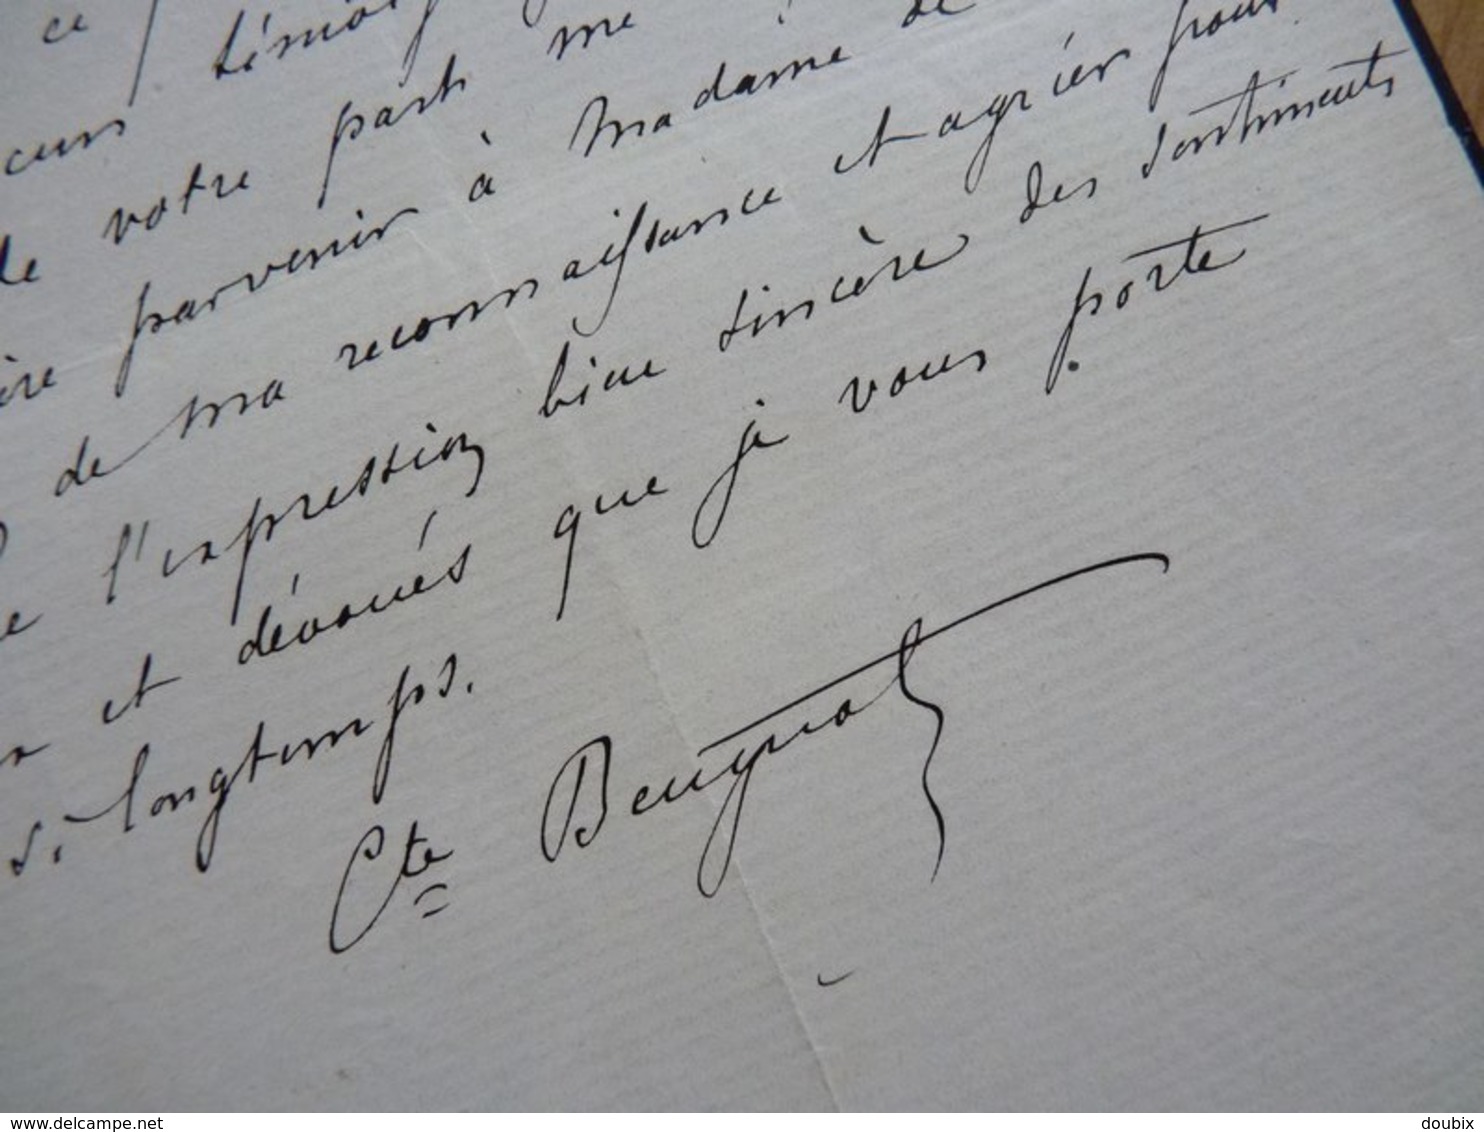 ce
témoi
de votre part me
parvenir à Madame de
de ma reconnaissance et agréer pour
l'expression bien sincère des sentiments
et dévoués que je vous porte
si longtemps.
Cte Beugnot
www.delcampe.net
doubix